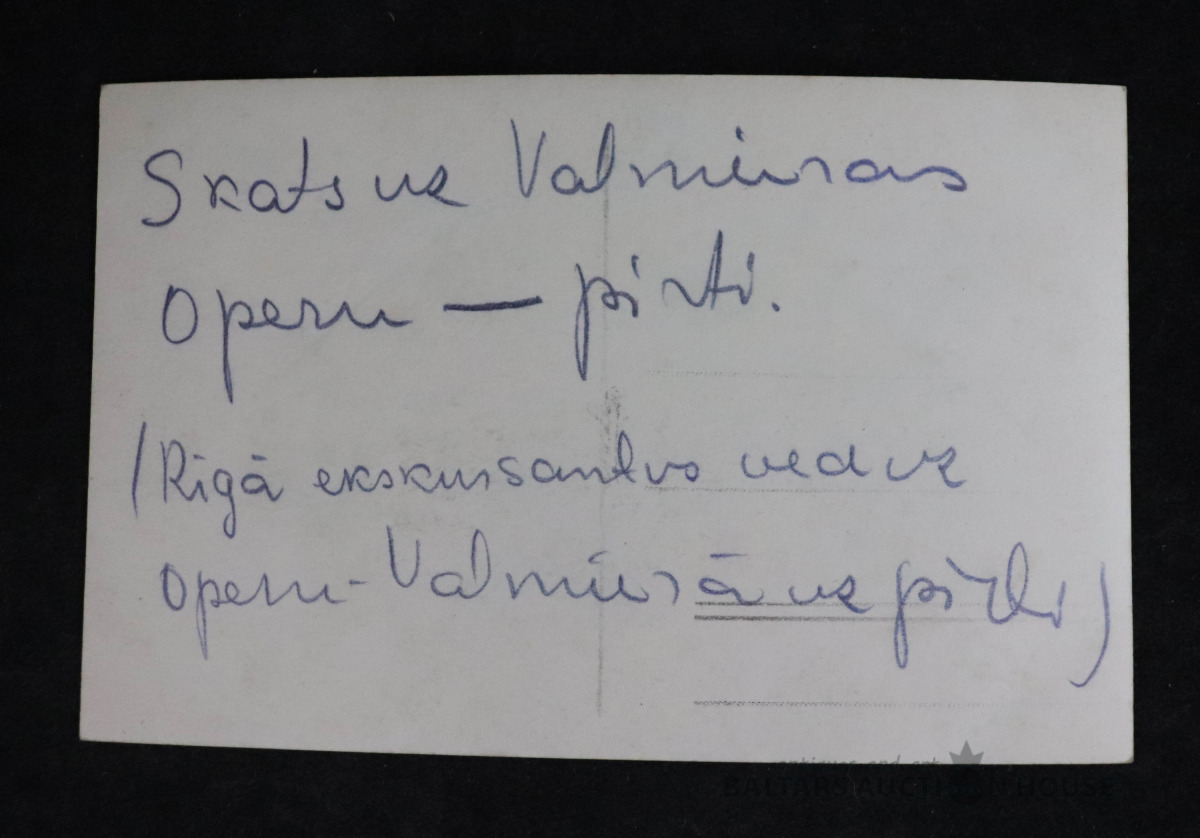 Skats uz Valmieras
operu — pirti.
(Rīgā ekskursantus ved uz
operu - Valmierā uz pirti)
antiques and art
BALTARS AUCTION HOUSE